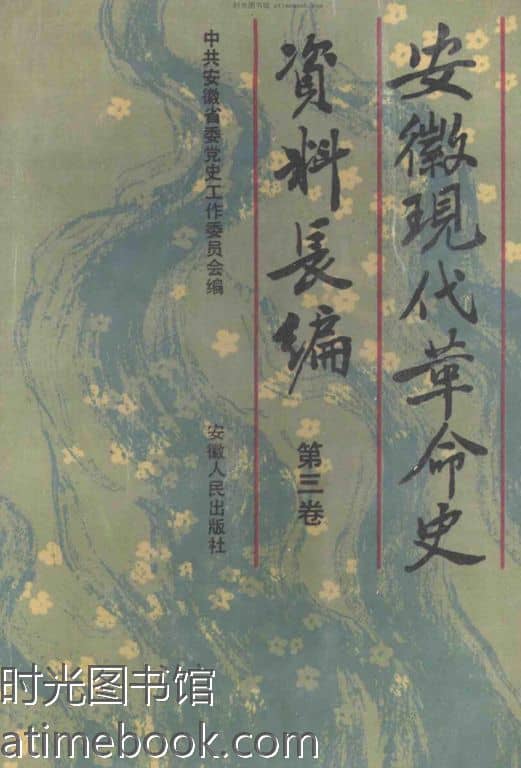 时光图书馆 atimebook.com
安徽現代革命史
資料長編
第三卷
中共安徽省委党史工作委员会编
安徽人民出版社
时光图书馆
atimebook.com